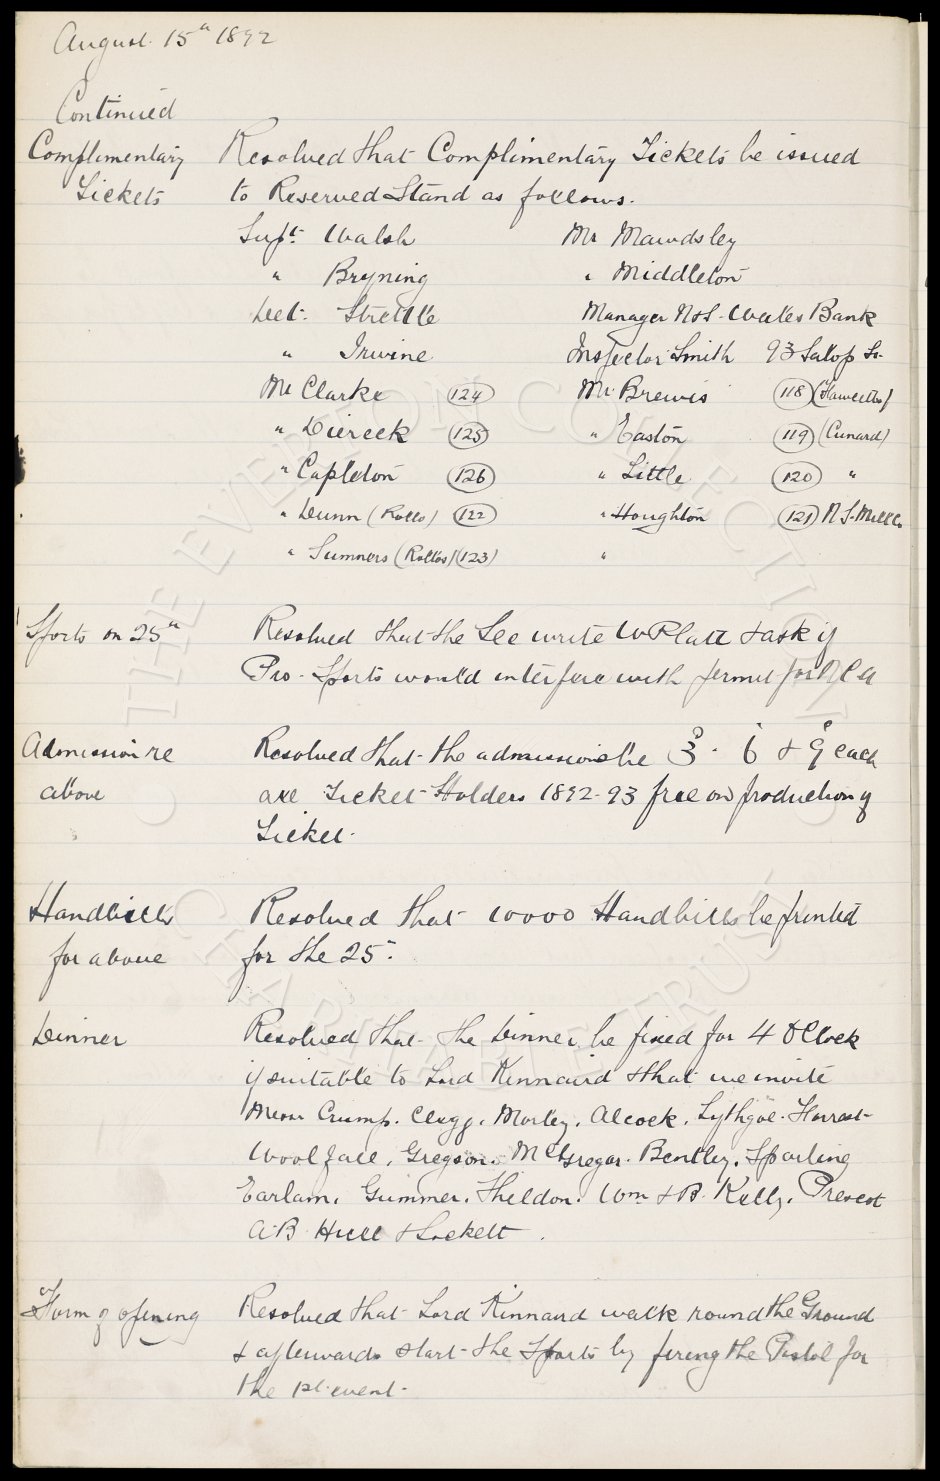 August 15th 1892
Continued
Complimentary Tickets
Resolved that Complimentary Tickets be issued
to Reserved Stand as follows.
Supt. Walsh Mr Mawdsley
" Bryning " Middleton
Det. Strettle Manager N & S. Wales Bank
" Irwine Inspector Smith 93 Salop St.
Mr Clarke 124 Mr Brewis 118 (Hawcetts)
" Diereck 125 " Easton 119 (Cunard)
" Capleton 126 " Little 120 "
" Dunn (Rollo) 122 " Houghton 121 N.S. Mill Co
" Sumners (Rollos) 123 "
Sports on 25th
Resolved that the Sec write W Platt & ask if
Pro. Sports would interfere with permit for
Admission re above
Resolved that the admission be 3d. 6d & 9d each
all Ticket Holders 1892-93 free on production of
Ticket.
Handbills for above
Resolved that 10000 Handbills be printed
for the 25th.
Dinner
Resolved that the Dinner be fixed for 4 O'Clock
if suitable to Lord Kinnaird & that we invite
Messrs Crump. Clegg. Morley. Alcock. Lythgoe. Horrast
Woolfall. Gregson. McGregor. Bentley. Sparling
Earlam. Gummer. Sheldon. Wm & B. Kelly. Prescot
A.B Hull & Lockett.
Form of opening
Resolved that Lord Kinnard walk round the Ground
& afterwards start the Sports by firing the Pistol for
the 1st event.
THE EVERTON COLLECTION
CHARITABLE TRUST